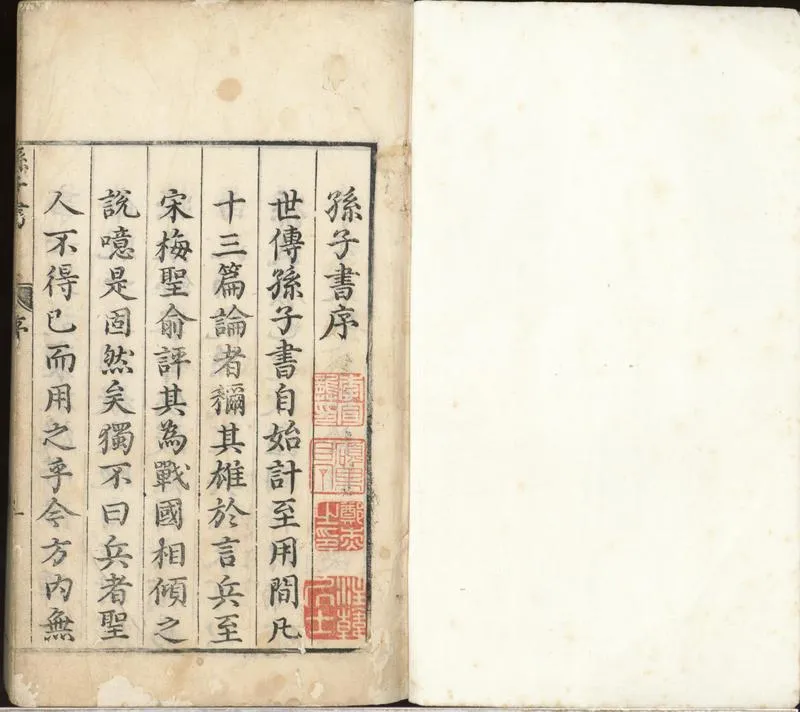 孫子書序
世傳孫子書自始計至用間凡
十三篇論者稱其雄於言兵至
宋梅聖俞評其為戰國相傾之
說噫是固然矣獨不曰兵者聖
人不得已而用之乎今方內無
孫子書
序